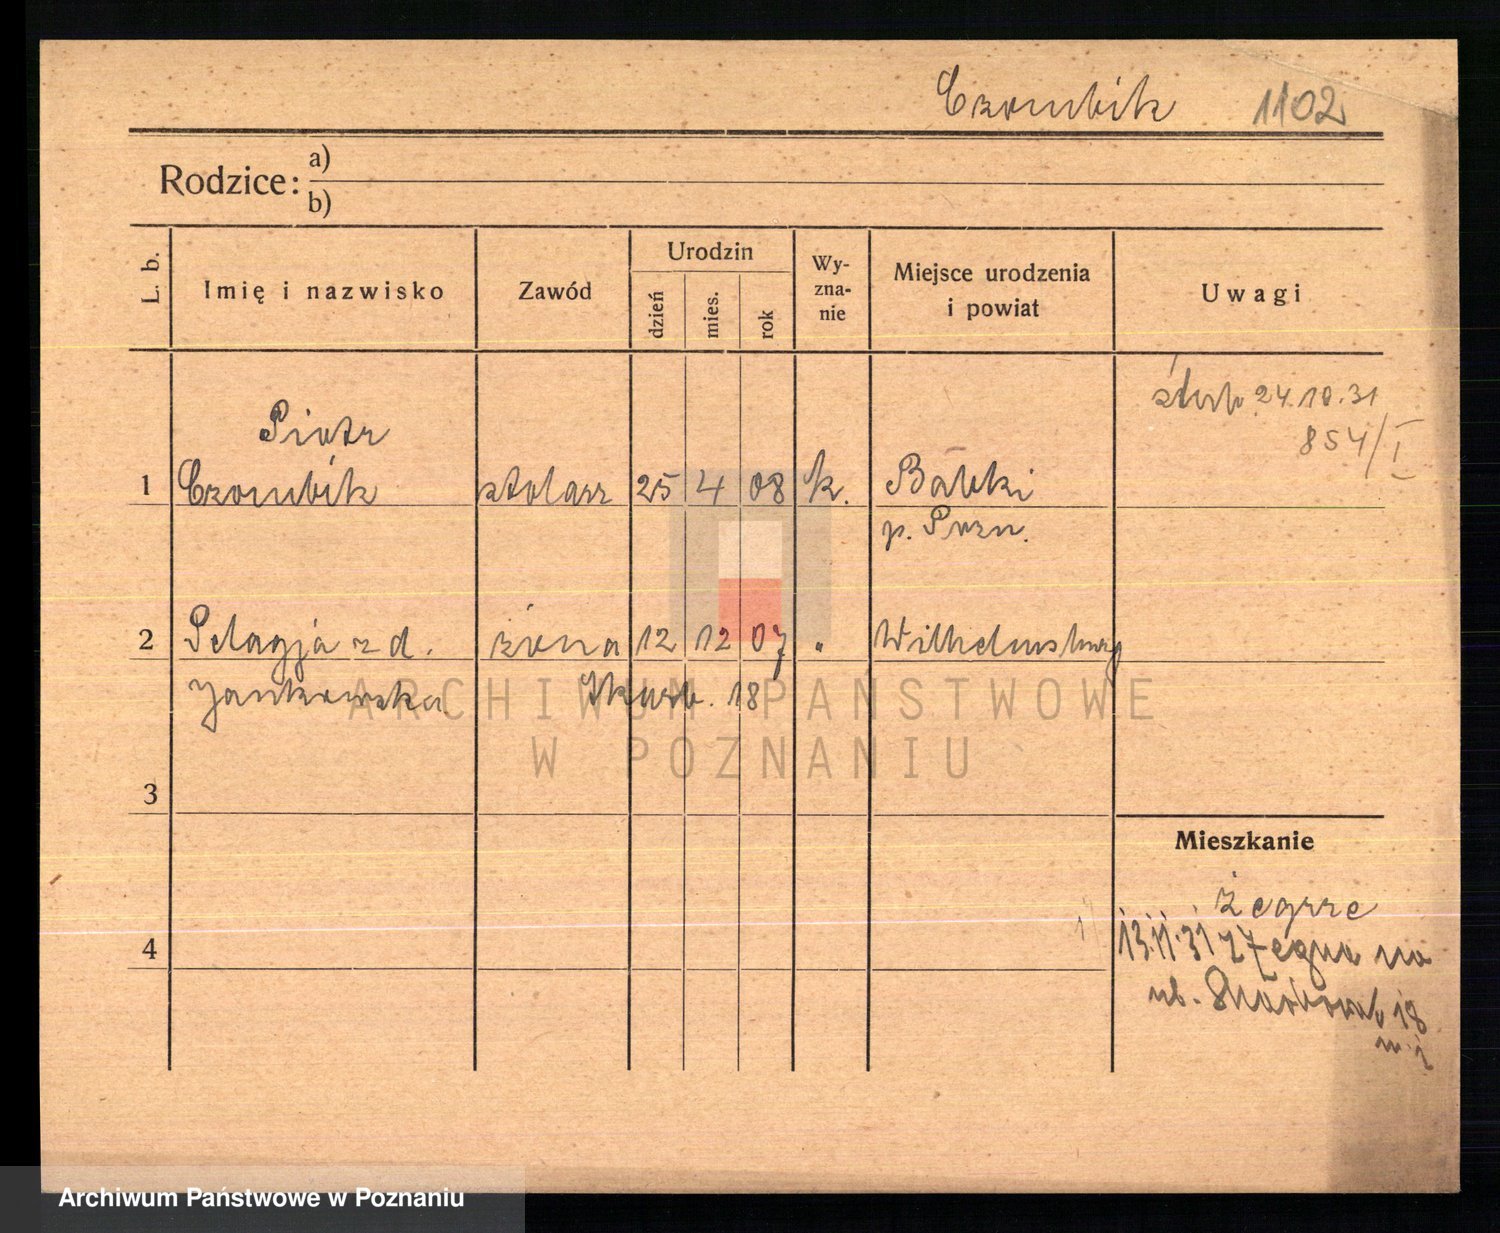 Czombik 1102
Rodzice: a)
b)
L. b. Imię i nazwisko Zawód Urodzin dzień mies. rok Wy-zna-nie Miejsce urodzenia i powiat Uwagi
24.10.31
854/I
Piotr
1 Czombik stolarz 25 4 08 k. Babki
p. Pozn.
2 Pelagja z d. żona 12 12 07 " Wilhelmsburg
Jankowska 18
3
Mieszkanie
Żegrze
4 13.11.31 na
ul. 18
ARCHIWUM PAŃSTWOWE
W POZNANIU
Archiwum Państwowe w Poznaniu